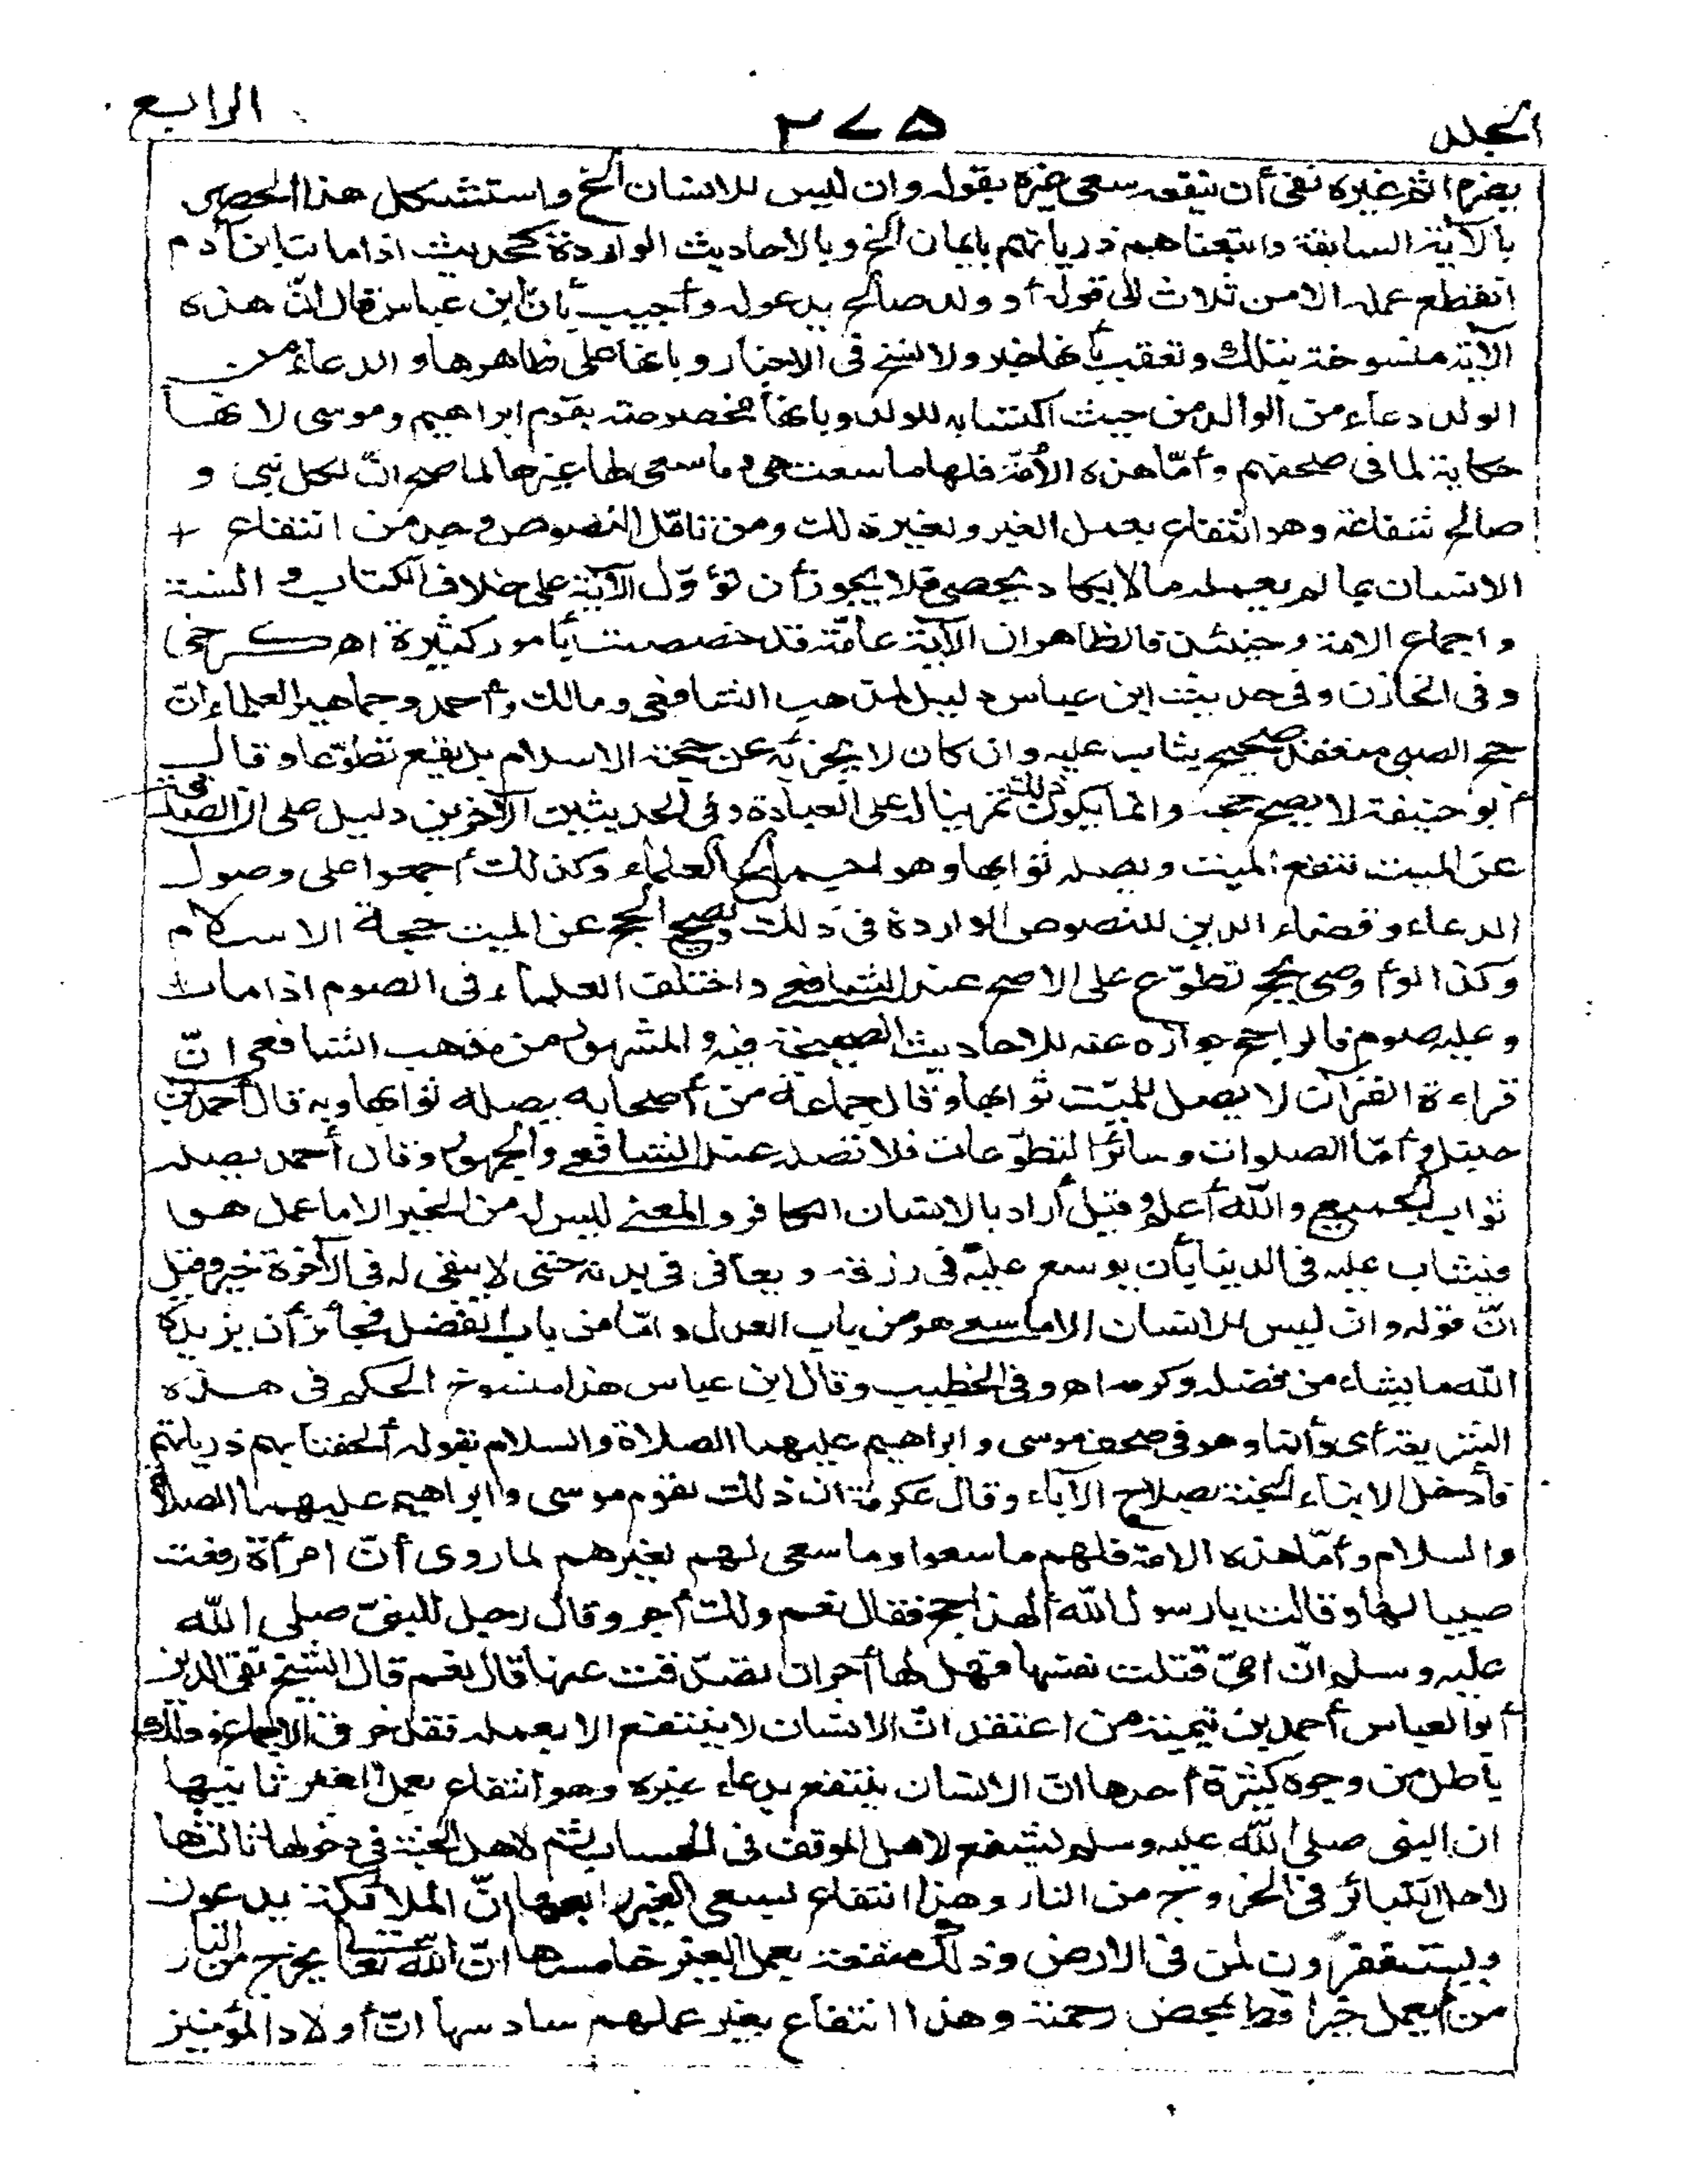 المجلد ٣٧٥ الرابع
يضره اثم غيره نفى أن ينفعه سعى غيره بقوله وان ليس للانسان الخ واستشكل هذا الحصر
بالآية السابقة واتبعناهم ذرياتهم بايمان الخ وبالاحاديث الواردة كحديث اذا مات ابن آدم
انقطع عمله الا من ثلاث الى قوله أو ولد صالح يدعو له وأجيب بأنّ ابن عباس قال انّ هذه
الآية منسوخة بتلك وتعقب بأنها خبر ولا نسخ فى الاخبار وبانها على ظاهرها والدعاء من
الولد دعاء من الوالد من حيث اكتسابه للولد وبانها مخصوصة بقوم ابراهيم وموسى لا نها
حكاية لما فى صحفهم وأمّا هذه الأمّة فلها ما سعت هى وما سعى لها غيرها لما صح انّ لكل نبى و
صالح شفاعة وهو انتفاع بعمل الغير ولغير ذلك ومن تامّل النصوص وجد من انتفاع +
الانسان بما لم يعمله ما لا يكاد يحصى فلا يجوز أن تؤوّل الآية على خلاف الكتاب و السنة
و اجماع الامة وحينئذ فالظاهر ان الآية عامّة قد خصصت بأمور كثيرة اهـ كرخى
وفى الخازن وفى حديث ابن عباس دليل لمذهب الشافعى ومالك وأحمد وجماهير العلماء انّ
حج الصبى منعقد صحيح يثاب عليه وان كان لا يجزيه عن حجة الاسلام بل يقع تطوّعا وقال
أبو حنيفة لا يصح حجه وانما يكون ذلك تمرينا له على العبادة وفى الحديثين الآخرين دليل على ان الصدقة
عن الميت تنفع الميت ويصله ثوابها وهو اجماع العلماء وكذلك أجمعوا على وصول
الدعاء وقضاء الدين للنصوص الواردة فى ذلك ويصح الحج عن الميت حجة الاسلام
وكذا لو أوصى بحج تطوّع على الاصح عند الشافعى واختلف العلماء فى الصوم اذا مات
وعليه صوم فالراجح جوازه عنه للاحاديث الصحيحة فيه والمشهور من مذهب الشافعى انّ
قراءة القرآن لا يصل للميّت ثوابها وقال جماعة من أصحابه يصله ثوابها وبه قال أحمد بن
حنبل وأمّا الصلوات وسائر التطوّعات فلا تصله عند الشافعى والجمهور وقال أحمد يصله
ثواب الجميع والله أعلم وقيل أراد بالانسان الكافر والمعنى ليس له من الخير الا ما عمل هو
فيثاب عليه فى الدنيا بأن يوسع عليه فى رزقه ويعافى فى بدنه حتى لا يبقى له فى الآخرة خير وقيل
انّ قوله وان ليس للانسان الا ما سعى هو من باب العدل وامّا من باب الفضل فجائز أن يزيده
الله ما يشاء من فضله وكرمه اهـ وفى الخطيب وقال ابن عباس هذا منسوخ الحكم فى هذه
الشريعة أى وانما هو فى صحف موسى وابراهيم عليهما الصلاة والسلام بقوله ألحقنا بهم ذرياتهم
فأدخل الابناء الجنة بصلاح الآباء وقال عكرمة ان ذلك لقوم موسى وابراهيم عليهما الصلاة
والسلام وأمّا هذه الامة فلهم ما سعوا وما سعى لهم غيرهم لما روى أنّ امرأة رفعت
صبيا لها وقالت يا رسول الله ألهذا حج فقال نعم ولك أجر وقال رجل للنبىّ صلى الله
عليه وسلم انّ امىّ قتلت نفسها فهل لها أجر ان تصدّقت عنها قال نعم قال الشيخ تقى الدين
أبو العباس أحمد بن تيمية من اعتقد انّ الانسان لا ينتفع الا بعمله فقد خرق الاجماع وذلك
باطل من وجوه كثيرة أحدها انّ الانسان ينتفع بدعاء غيره وهو انتفاع بعمل الغير ثانيها
ان النبى صلى الله عليه وسلم يشفع لاهل الموقف فى الحساب ثم لاهل الجنة فى دخولها ثالثها
لاهل الكبائر فى الخروج من النار وهذا انتفاع بسعى الغير رابعها انّ الملائكة يدعون
ويستغفرون لمن فى الارض وذلك منفعة بعمل الغير خامسها انّ الله تعالى يخرج من النار
من لم يعمل خيرا قط بمحض رحمته وهذا انتفاع بغير عملهم سادسها انّ أولاد المؤمنين